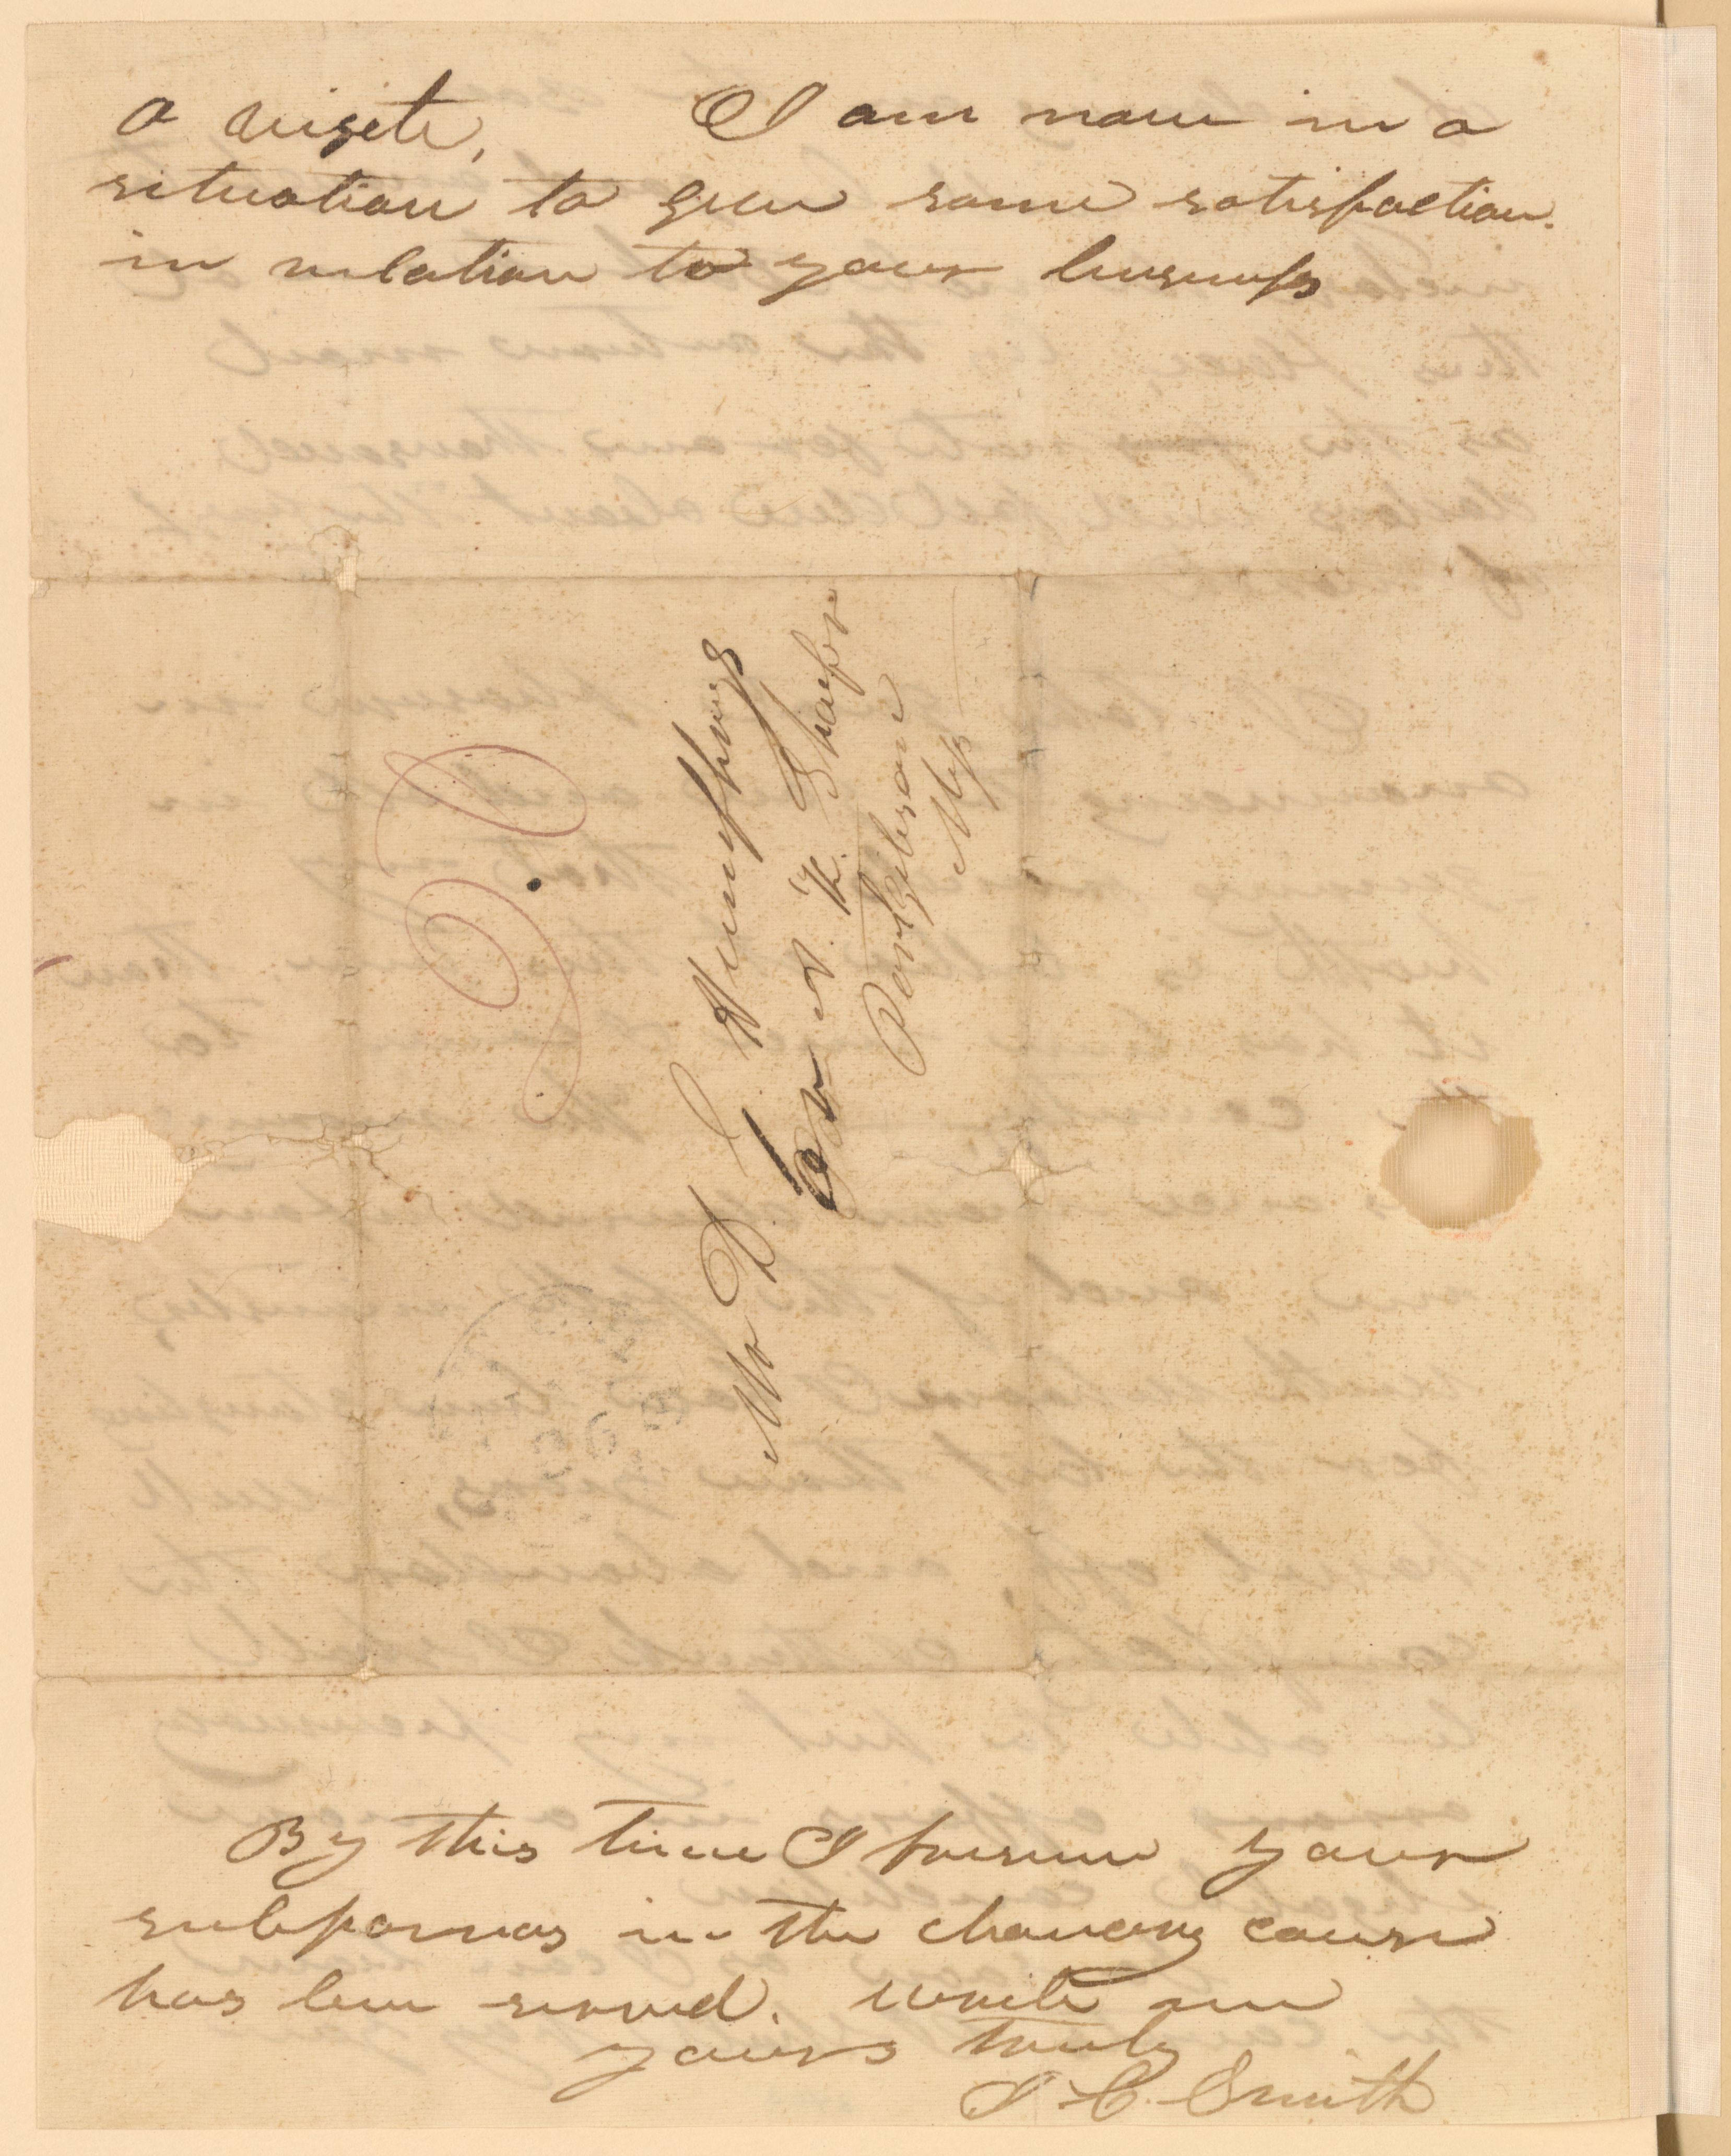 a visete, I am now in a
situation to give some satisfaction.
in relation to your business
Mr D Humphreys
Port gibson
Miss
By this time I presume your
subpoenas in the chancery cause
has been served. write me
yours truly
S. C. Smith